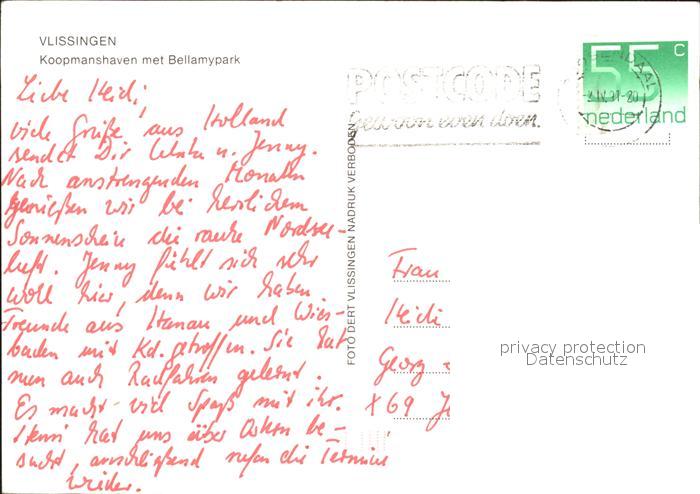 VLISSINGEN
Koopmanshaven met Bellamypark
Liebe Heidi,
viele Grüße aus Holland
sendet Dir u. Jenny.
Nach anstrengenden Monaten
genießen wir bei herrlichem
Sonnenschein die rauhe Nordsee-
luft. Jenny fühlt sich sehr
wohl hier, denn wir haben
Freunde aus Hanau und Wies-
baden mit Kd. getroffen. Sie hat
nun auch Radfahren gelernt.
Es macht viel Spaß mit ihr.
Henri hat uns über Ostern be-
sucht, anschließend rufen die Termine
wieder.
FOTO DERT VLISSINGEN NADRUK VERBODEN
POSTCODE
gewoon even doen.
55 c
nederland
Frau
Heidi
Georg
X69
privacy protection
Datenschutz